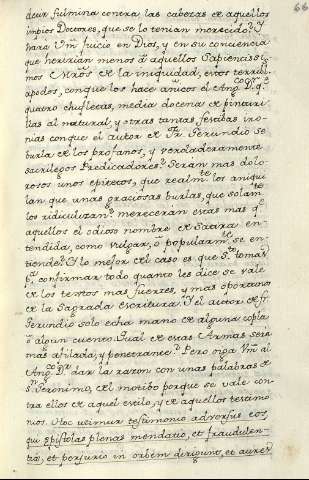 66
decir fulmina contra las cabezas de aquellos
impios Doctores, que se lo tenian merecido? Y
hara Vm juicio en Dios, y en su conciencia
que herirían menos a aquellos Sapiencissi-
mos Mros de la iniquidad, estos terribles
apodos, con que los hace añicos el Ang.co D.r q.e
quatro chufletas, media docena de pinturi-
llas al natural y otras tantas festibas iro-
nias con que el autor de Fr. Gerundio se
burla de los profanos, y verdaderamente
sacrilegos Predicadores? Seran mas dolo-
rosos unos epitetos, que realm.te los aniqui-
lan que unas graciosas burlas, que solam.te
los ridiculizan? mereceran estas mas q.e
aquellos el odioso nombre de Satira en-
tendida, como vulgar, o popularm.te se en-
tiende? Y lo mejor del caso es que S.to tomas
p.a confirmar todo quanto les dice se vale
de los textos mas fuertes, y mas oportunos
de la Sagrada escritura: Y el autor de fr.
Gerundio solo echa mano de alguna copla
o algun cuento. Qual de estas Armas sera
mas afilada, y penetrante? Pero oiga Vm al
Ang.co D.r dar la razon con unas palabras de
S.n Geronimo, del motibo porque se vale con-
tra ellos de aquel estilo, y de aquellos testimo-
nios. Hoc utimur testimonio adversus eos
qui epistolas plenas mendacio, et fraudulen-
tia, et perjurio in orbem dirigunt, et aures